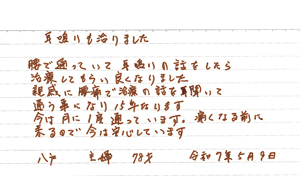 耳鳴りも治りました
腰で通っていて 耳鳴りの話をしたら
治療してもらい良くなりました
親戚に腰痛で治療の話を聞いて
通う事になり15年たります
今は月に1度通っています。痛くなる前に
来るので今は安心しています
八戸 主婦 78才 令和7年5月9日